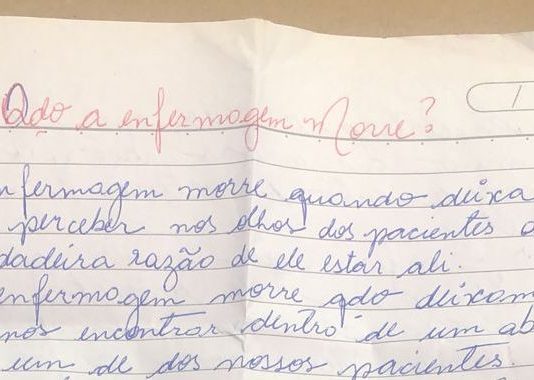 Qdo a enfermagem Morre?
nfermagem morre quando deixa
perceber nos olhos dos pacientes a
dadeira razão de ele estar ali.
enfermagem morre qdo deixam
nos encontrar dentro de um ab
um de dos nossos pacientes.